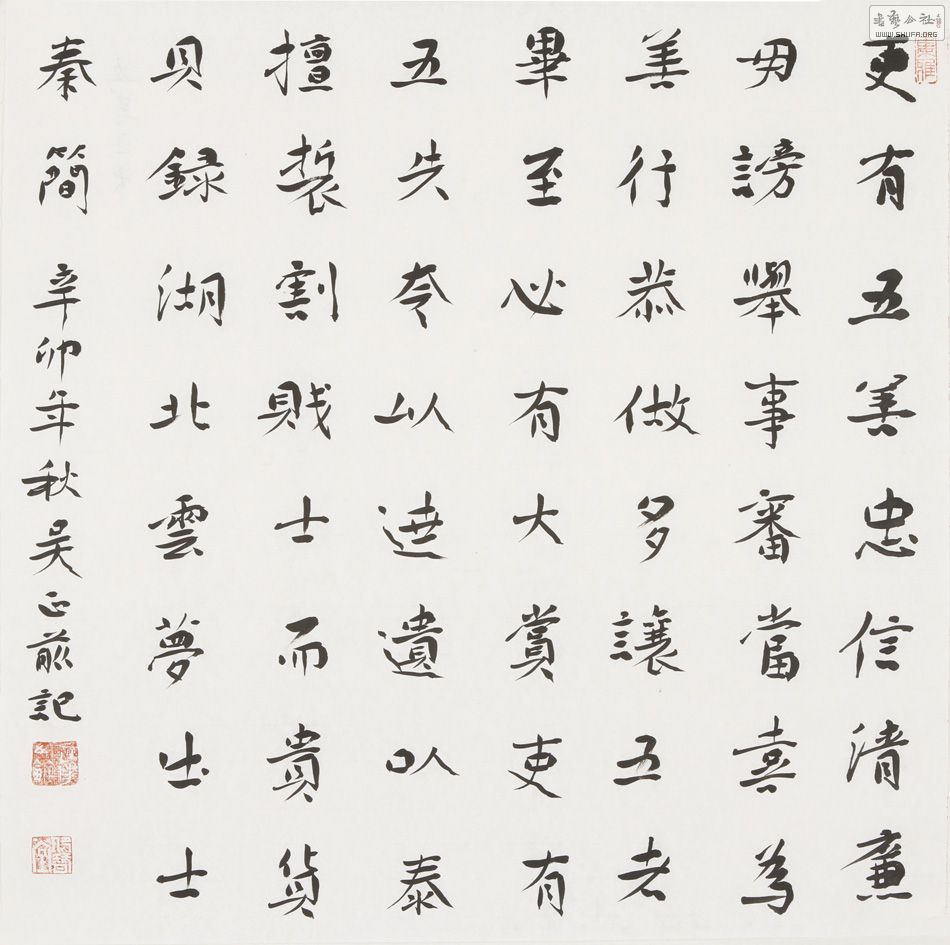 吏有五善忠信清廉
毋謗舉事審當喜為
善行恭做多讓五者
畢至必有大賞吏有
五失夸以遶遺以泰
擅裚割賤士而貴貨
貝録湖北雲夢出土
秦簡 辛卯年秋吴正前記
書藝公社
WWW.SHUFA.ORG